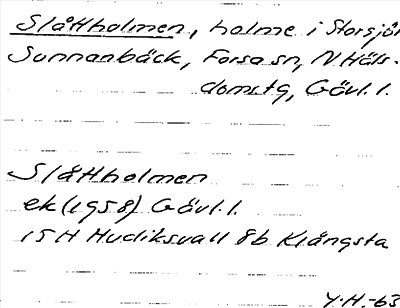 Slåttholmen, holme i Storsjön
Sunnanbäck, Forsa sn, N Häls.
domstg, Gävl.l.
Slåttholmen
ek (1958) Gävl.l.
15H Hudiksvall 8b Klångsta
Y.H.-63